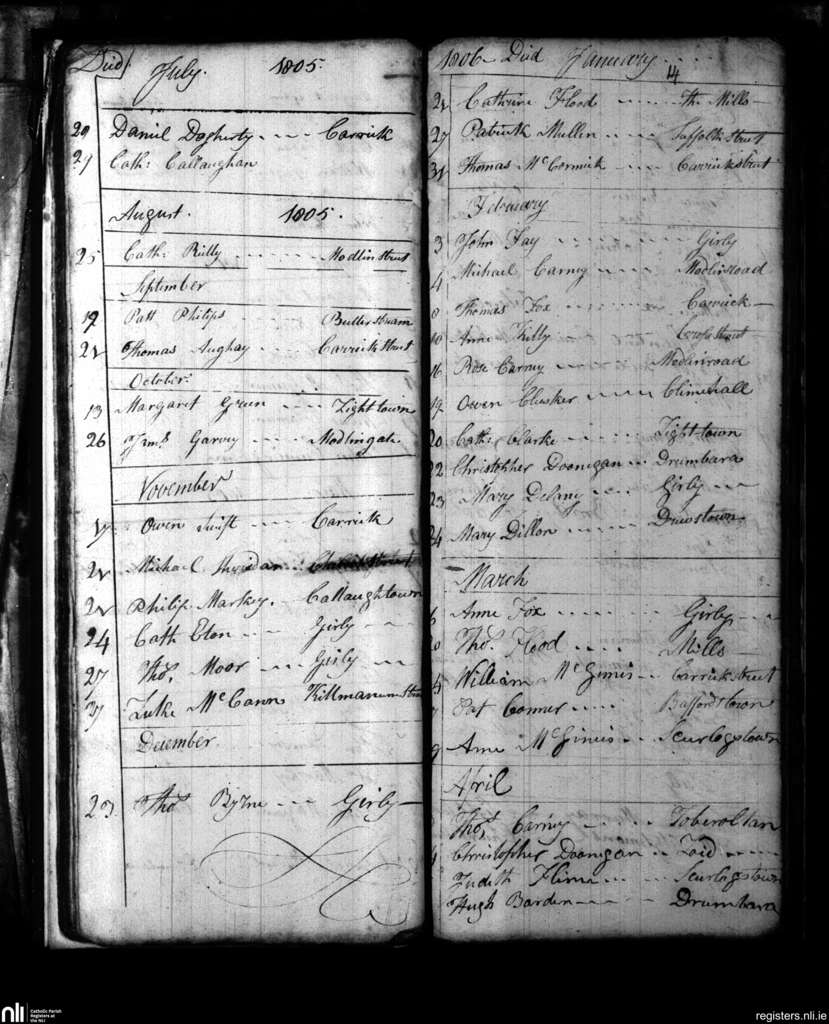 Died July. 1805.
29 Daniel Dogherty Carrick
29 Cath: Callaughan
August. 1805.
25 Cath: Rilly Modlin street
September
19 Patt Philips Butterstream
21 Thomas Aughay Carrick street
October
13 Margaret Green Lighttown
26 Garvey Modlingate
November
Owen Swift Carrick
Michael Sheridan
Philip Markey. Callaughtown
24 Cath Eton Girly
27 Thos. Moor Girly
Luke McCann Killmanum
December.
23 Thos Byrne Girly
1806 Died January
14
21 Cathrine Flood the Mills
27 Patrick Mullen Suffolk street
31 Thomas McCormick Carrickstreet
February
3 John Fay Girly
4 Michael Carney Modlinroad
8 Thomas Fox Carrick
10 Anne Killy Cross street
16 Rose Carney Modlinroad
19 Owen Clusker Climehall
20 Cath: Clarke Light town
22 Christopher Doonigan Drumbara
23 Mary Delany Girly
24 Mary Dillon Drewstown
March
Anne Fox Girly
Thos. Flood Mills
William McGinnis Carrickstreet
Pat Connor Baffordstown
9 Anne McGinnis Scurlogstown
April
Thos. Carney Toberoltan
Christopher Doonigan Loid
Judith Flinn Scurlogstown
Hugh Barden Drumbara
nli Catholic Parish
Registers at
the NLI
registers.nli.ie